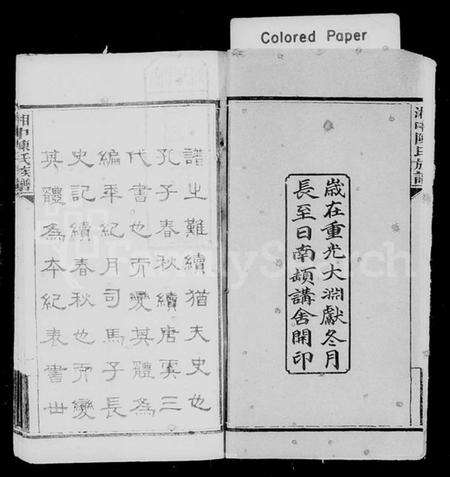 Colored Paper
湘中陳氏族譜
歲在重光大淵獻冬月
長至日南頓講舍開印
譜之難續猶夫史也
孔子春秋續唐虞三
代書也而變其體為
編年紀月司馬子長
史記續春秋也而變
其體為本紀表書世
湘中陳氏族譜